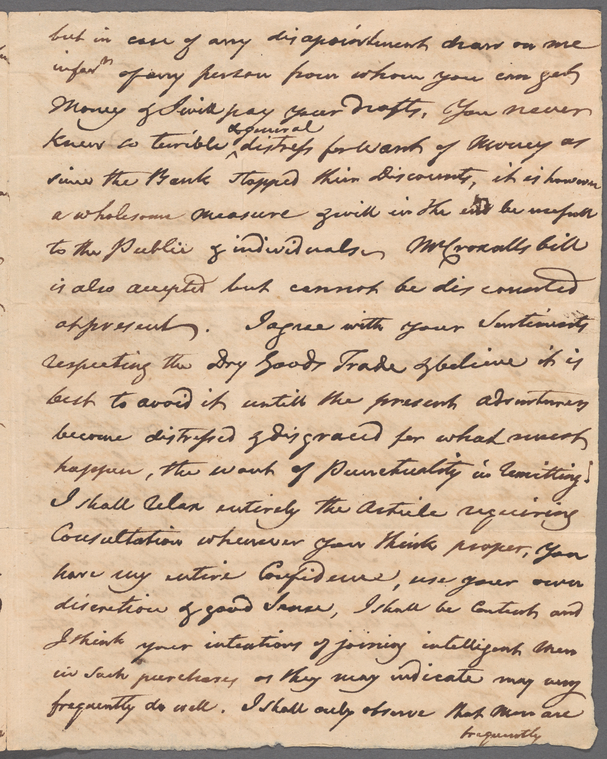 but in case of any disapointment draw on me
infavr of any person from whom you can get
Money & I will pay your drafts. You never
& general
knew so terrible distress for want of Money as
since the Bank stopped their discounts, it is however
a wholesome measure & will in the end be usefull
to the Public & individuals. Mr Croxalls bill
is also accepted but cannot be discounted
at present. I agree with your Sentiments
respecting the Dry Goods Trade & believe it is
best to avoid it untill the present adventurers
become distressed & disgraced for what must
happen, the want of Punctuality in remitting.
I shall relax entirely the Article requiring
Consultation whenever you think proper, You
have my entire Confidence, use your own
discretion & good Sense, I shall be Content and
I think your intentions of joining intelligent Men
in such purchases as they may indicate may very
frequently do well. I shall only observe that Men are
frequently